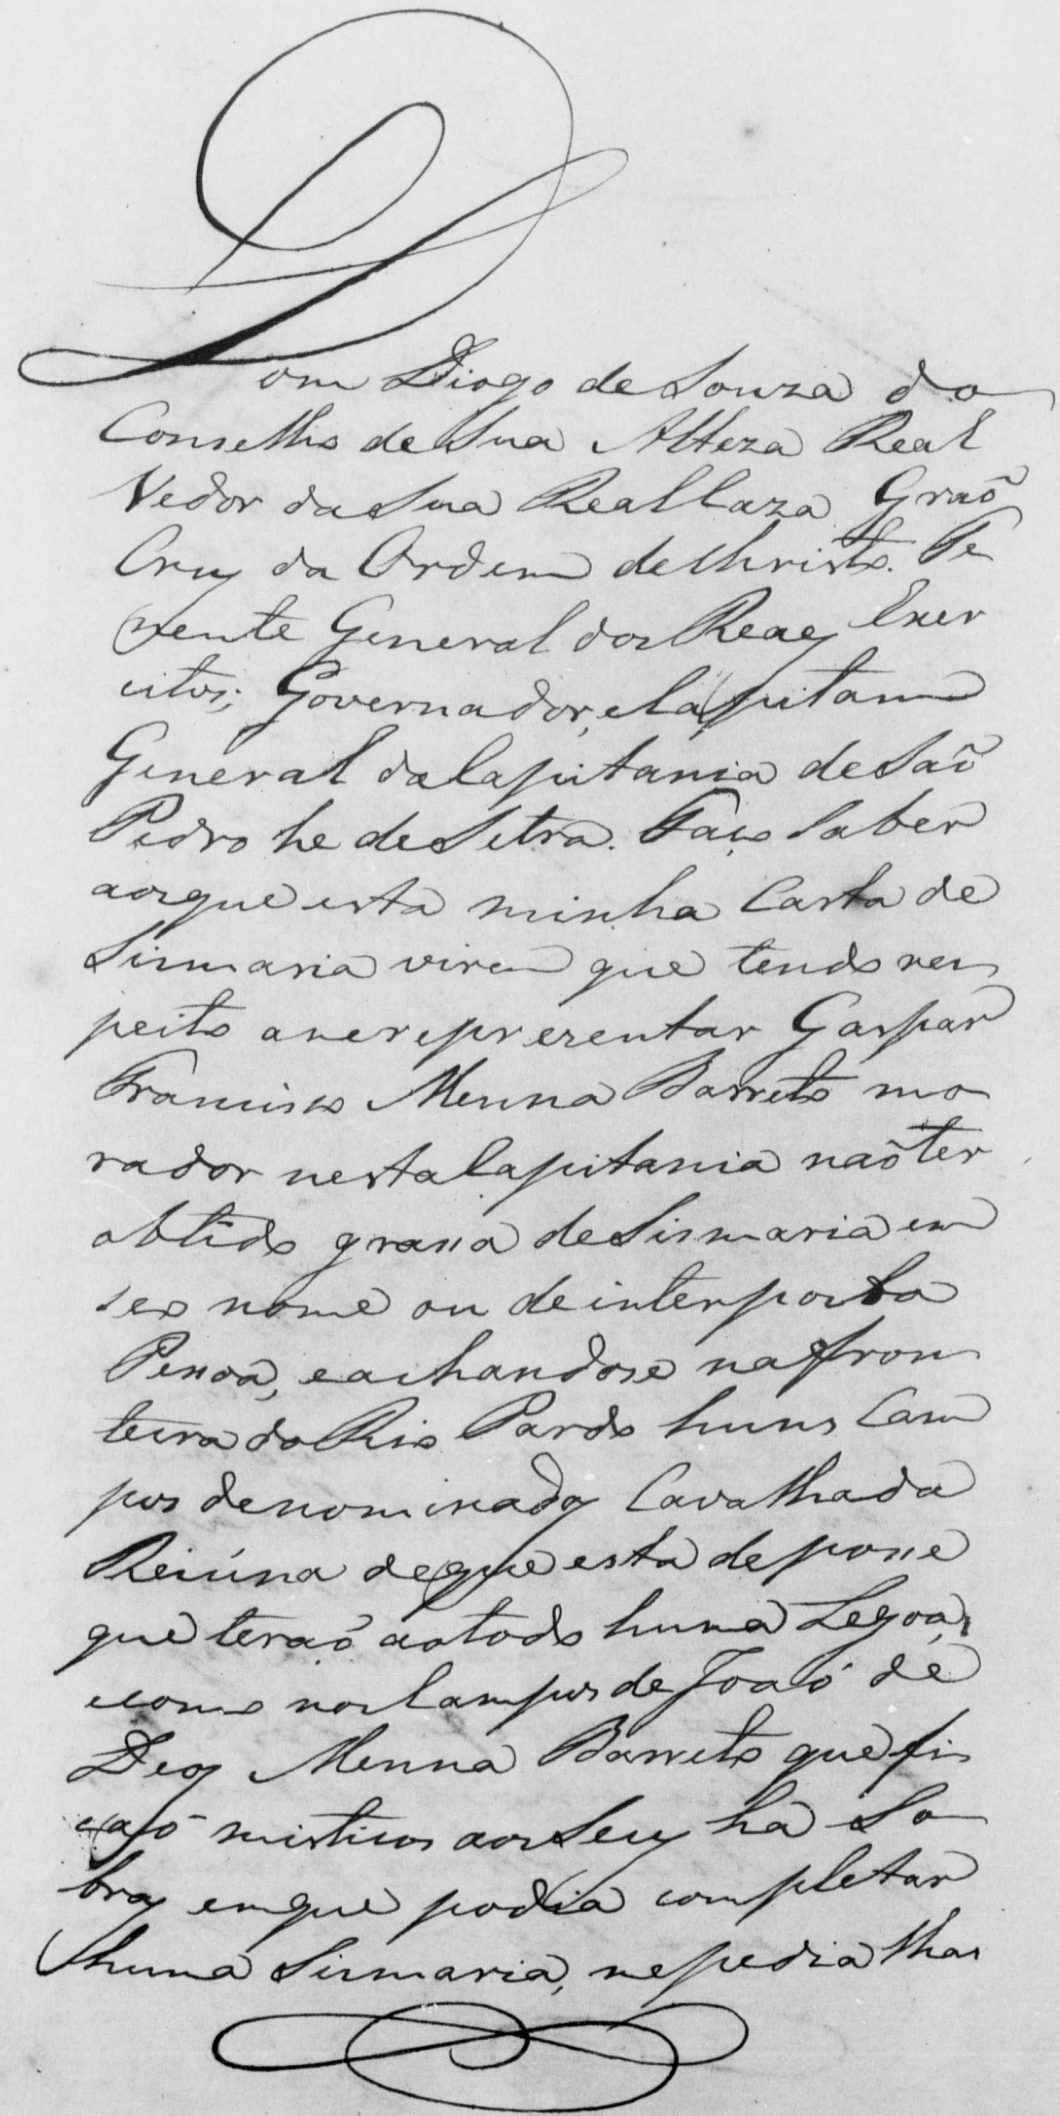 Dom Diogo de Souza do
Conselho de Sua Alteza Real
Vedor da Sua Real Caza Graõ
Cruz da Ordem de Christo. Te
nente General dos Reaes Exer
citos; Governador, e Capitam
General da Capitania de Saõ
Pedro he de Setra. Faço Saber
aos que esta minha Carta de
Sismaria virem que tendo res
peito a me reprezentar Gaspar
Francisco Menna Barreto mo
rador nesta Capitania naõ ter
obtido grassa de Sismaria em
seo nome ou de interposta
Pessoa, e achandose na fron
teira do Rio Pardo huns Cam
pos denominados Cavalhada
Reiúna de que esta de posse
que teraõ ao todo huma Legoa,
e como nos Campos de Joaõ de
Deos Menna Barreto que fi
caõ misticos aos Seus ha So
bras em que podia completar
huma Sismaria, me pedia lhas